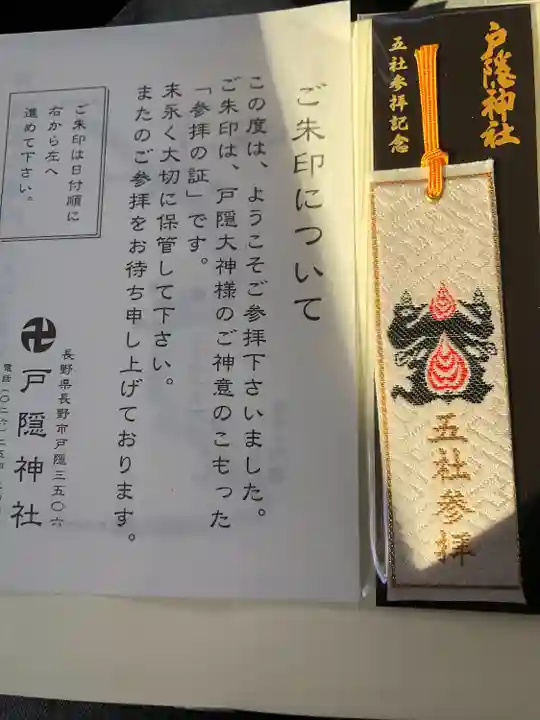 戸隠神社
五社参拝記念
五社参拝
ご朱印について
この度は、ようこそご参拝下さいました。
ご朱印は、戸隠大神様のご神意のこもった
「参拝の証」です。
末永く大切に保管して下さい。
またのご参拝をお待ち申し上げております。
ご朱印は日付順に
右から左へ
進めて下さい。
長野県長野市戸隠三五〇六
卍 戸隠神社
電話(〇二六)二五四